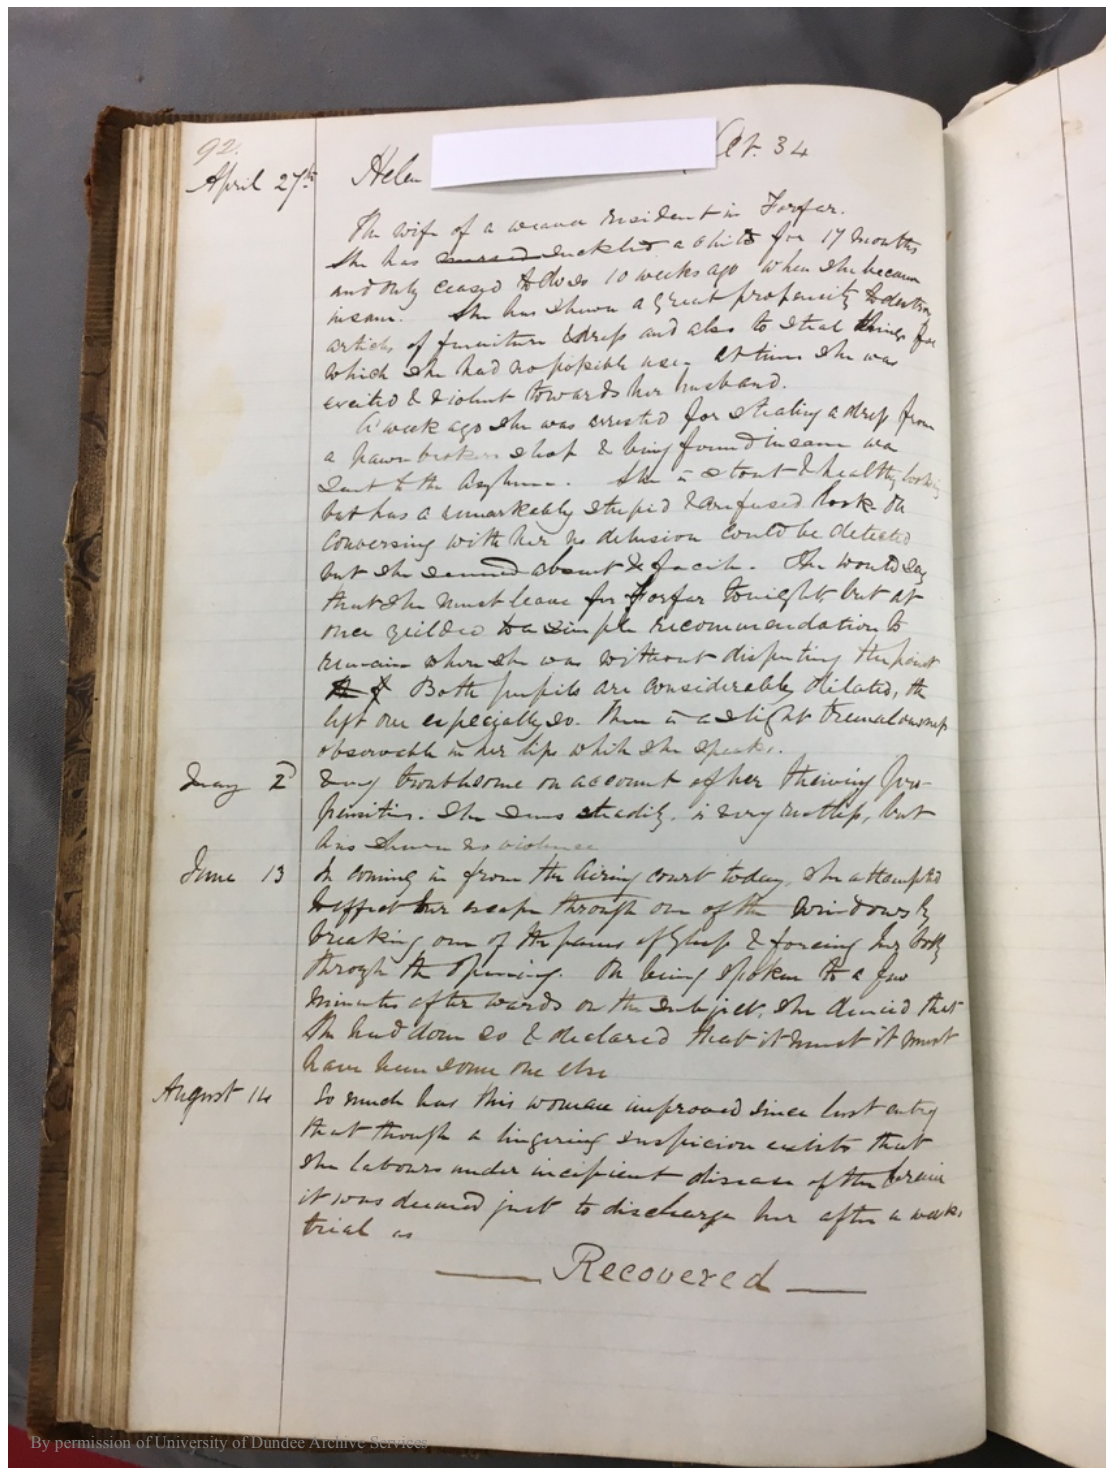 92.
April 27th Helen Aet. 34
The wife of a weaver resident in Forfar.
She has nursed suckled a child for 17 months
and only ceased to do so 10 weeks ago when she became
insane. She has shewn a great propensity to destroy
articles of furniture & dress and also to steal things for
which she had no possible use. At times she was
excited & violent towards her husband.
A week ago she was arrested for stealing a dress from
a pawn brokers shop & being found insane was
sent to the Asylum. She is stout & healthy looking
but has a remarkably stupid & confused look. On
conversing with her no delusion could be detected
but she seemed absent & facile. She would say
that she must leave for Forfar tonight, but at
once yeilded to a simple recommendation to
remain where she was without disputing the point
Both pupils are considerably dilated, the
left one especially so. There is a slight tremulousness
observable in her lips while she speaks.
May 2d Very troublesome on account of her thieving pro-
pensities. She sews steadily, is very restless, but
has shewn no violence
June 13 On coming in from the Airing court today, she attempted
to effect her escape through one of the windows by
breaking one of the panes of glass & forcing her body
through the opening. On being spoken to a few
minutes afterwards on the subject, she denied that
she had done so & declared that it must it must
have been some one else
August 14 So much has this woman improved since last entry
that though a lingering suspicion exists that
she labours under incipient disease of the brain
it was deemed just to discharge her after a weeks
trial as
Recovered
By permission of University of Dundee Archive Services